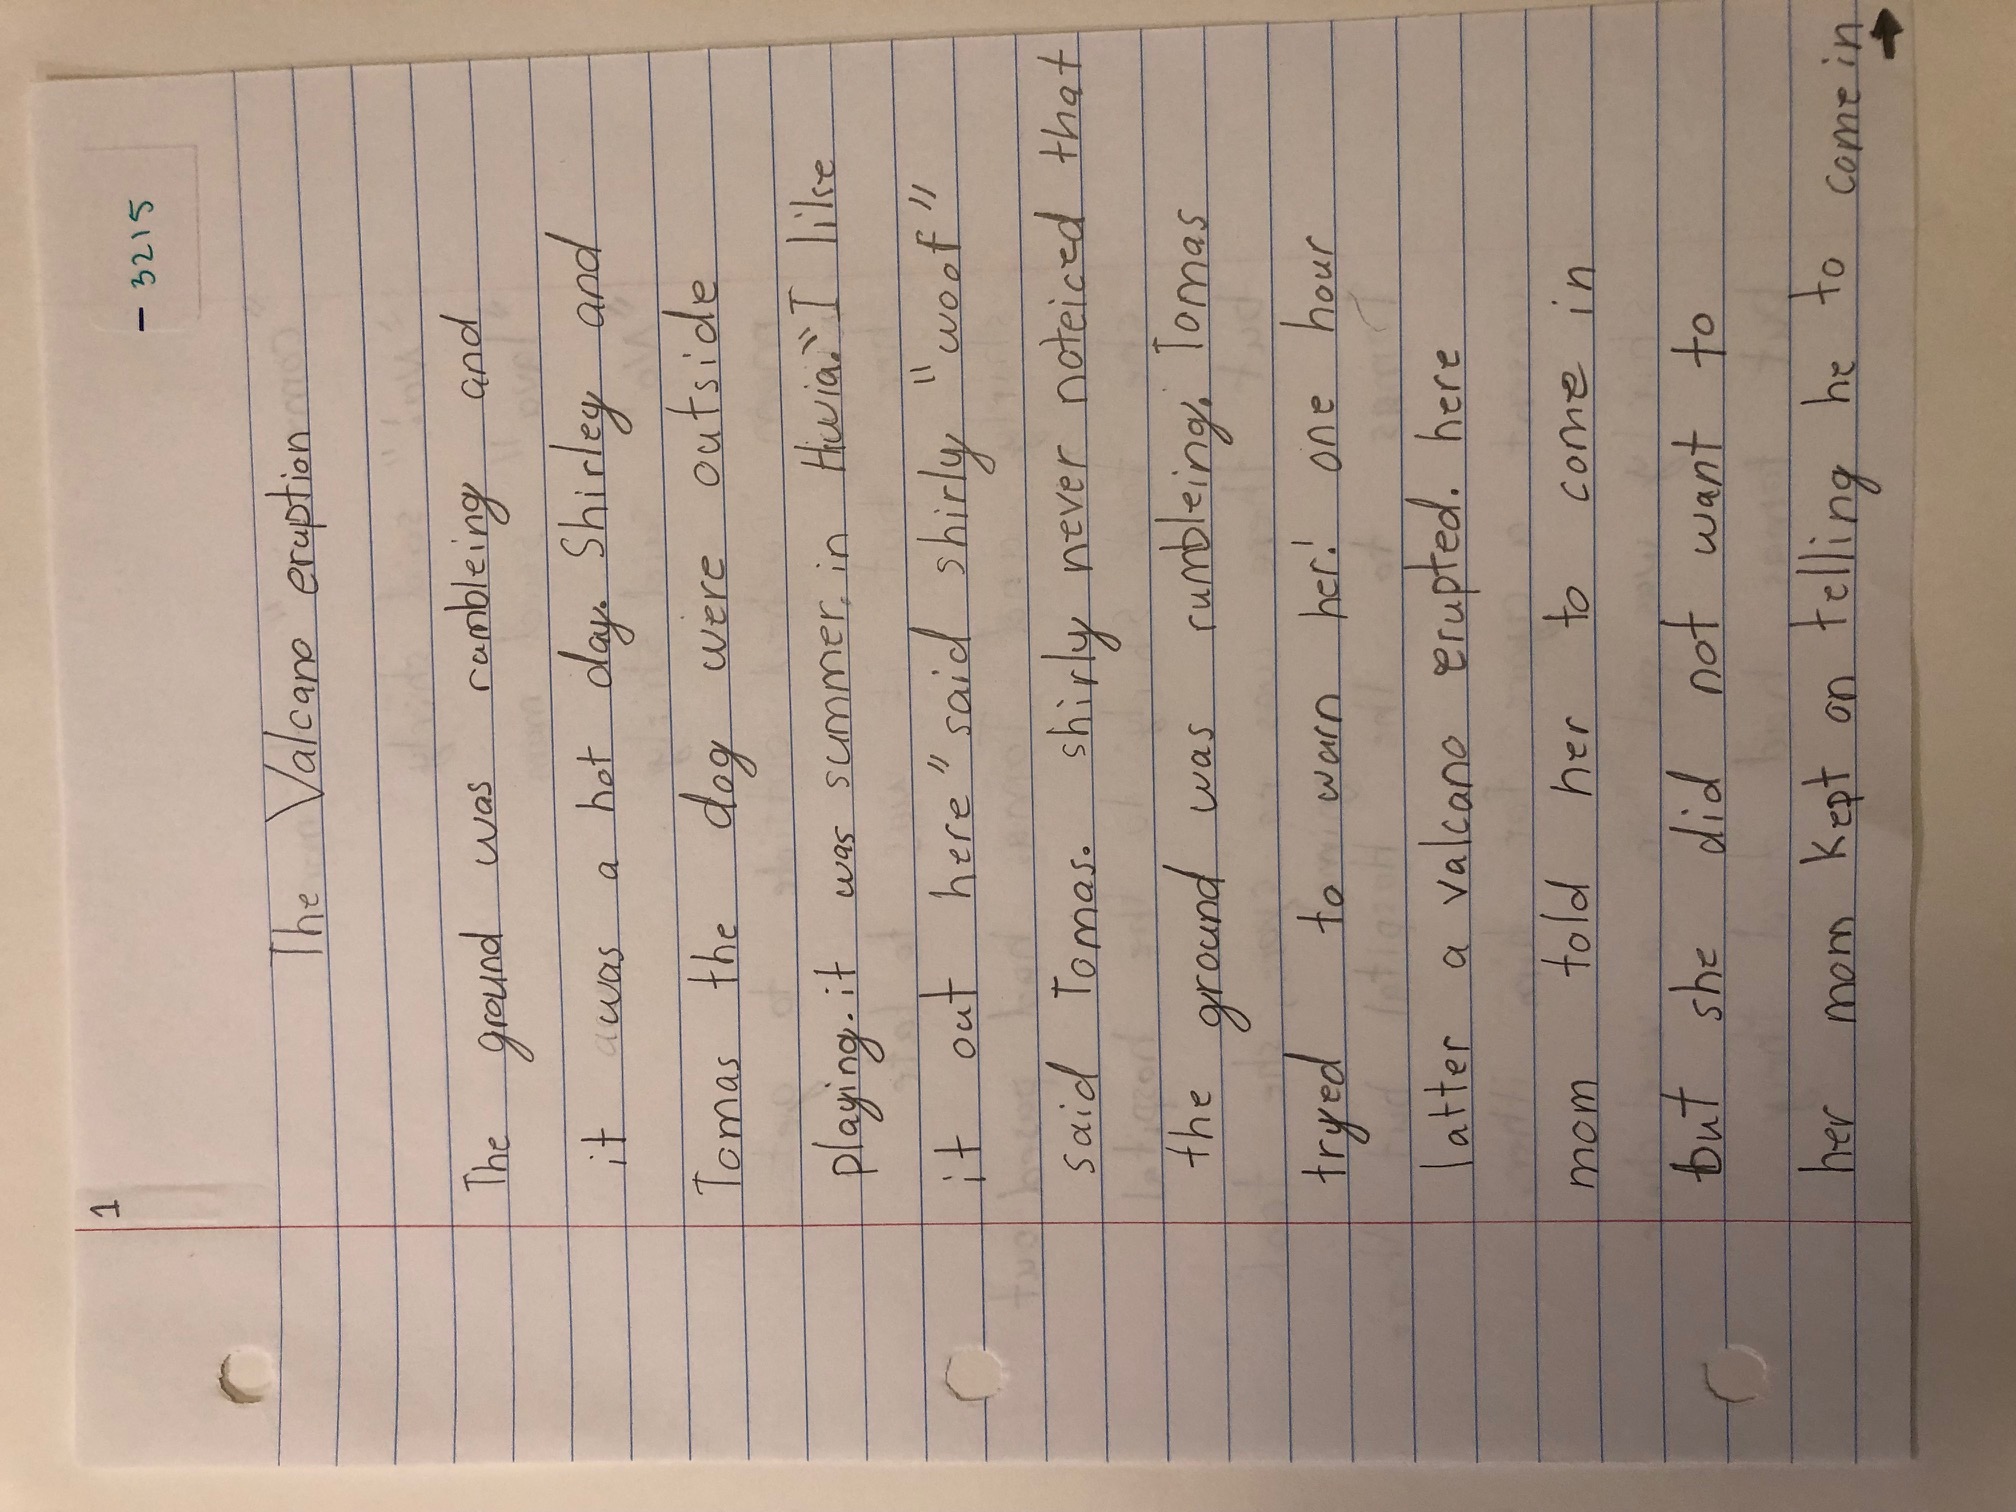 1
- 3215
The Valcano eruption
The ground was rumbleing and
it was a hot day. Shirley and
Tomas the dog were outside
playing. it was summer. in Hiwia. "I like
it out here" said shirly "woof"
said Tomas. shirly never noteiced that
the ground was rumbleing. Tomas
tryed to warn her! one hour
latter a valcano erupted. here
mom told her to come in
but she did not want to
her mom kept on telling he to come in
→